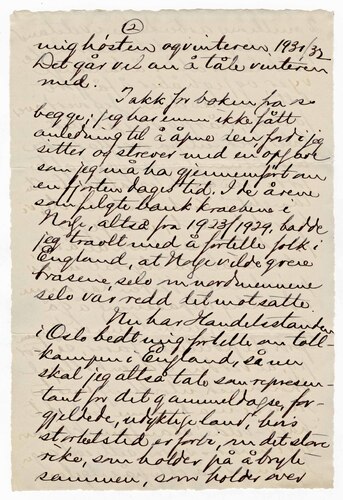 2
mig høsten og vinteren 1931/32
Det går vel an å tåle vinteren
med.
Takk for boken fra
begge; jeg har ennu ikke fått
anledning til å åpne den fordi jeg
sitter og strever med en opgave
som jeg må ha gjennemført om
en fjorten dagers tid. I de årene
som fulgte bank krachene i
Norge, altså fra 1923/1924, hadde
jeg travlt med å fortelle folk i
England, at Norge vilde greie
brasene, selv om nordmennene
selv var redd det motsatte.
Nu har Handelsstanden
i Oslo bedt mig fortelle om toll-
kampen i England, så nu
skal jeg altså tale som represen-
tant for det gammeldagse, for-
gjeldede, udyktige land, hvis
storhetstid er forbi, om det store
rike, som holder på å bryte
sammen, som holder over